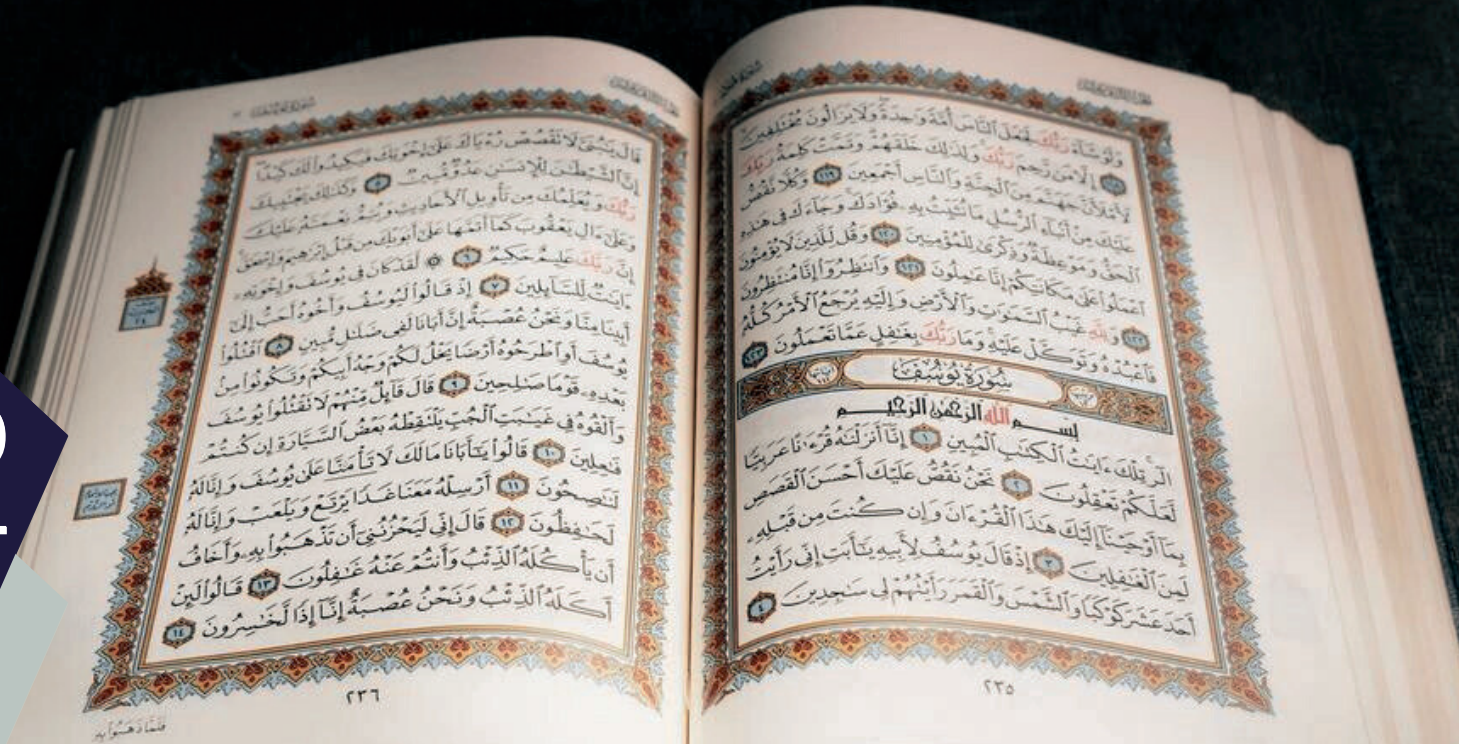 وَلَوْ شَآءَ رَبُّكَ لَجَعَلَ ٱلنَّاسَ أُمَّةً وَٰحِدَةً وَلَا يَزَالُونَ مُخْتَلِفِينَ
١١٨ إِلَّا مَن رَّحِمَ رَبُّكَ وَلِذَٰلِكَ خَلَقَهُمْ وَتَمَّتْ كَلِمَةُ رَبِّكَ
لَأَمْلَأَنَّ جَهَنَّمَ مِنَ ٱلْجِنَّةِ وَٱلنَّاسِ أَجْمَعِينَ ١١٩ وَكُلًّا نَّقُصُّ
عَلَيْكَ مِنْ أَنۢبَآءِ ٱلرُّسُلِ مَا نُثَبِّتُ بِهِۦ فُؤَادَكَ وَجَآءَكَ فِى هَٰذِهِ
ٱلْحَقُّ وَمَوْعِظَةٌ وَذِكْرَىٰ لِلْمُؤْمِنِينَ ١٢٠ وَقُل لِّلَّذِينَ لَا يُؤْمِنُونَ
ٱعْمَلُوا۟ عَلَىٰ مَكَانَتِكُمْ إِنَّا عَٰمِلُونَ ١٢١ وَٱنتَظِرُوٓا۟ إِنَّا مُنتَظِرُونَ
١٢٢ وَلِلَّهِ غَيْبُ ٱلسَّمَٰوَٰتِ وَٱلْأَرْضِ وَإِلَيْهِ يُرْجَعُ ٱلْأَمْرُ كُلُّهُۥ
فَٱعْبُدْهُ وَتَوَكَّلْ عَلَيْهِ وَمَا رَبُّكَ بِغَٰفِلٍ عَمَّا تَعْمَلُونَ ١٢٣
سُورَةُ يُوسُفَ
بِسْمِ ٱللَّهِ ٱلرَّحْمَٰنِ ٱلرَّحِيمِ
الٓر تِلْكَ ءَايَٰتُ ٱلْكِتَٰبِ ٱلْمُبِينِ ١ إِنَّآ أَنزَلْنَٰهُ قُرْءَٰنًا عَرَبِيًّا
لَّعَلَّكُمْ تَعْقِلُونَ ٢ نَحْنُ نَقُصُّ عَلَيْكَ أَحْسَنَ ٱلْقَصَصِ
بِمَآ أَوْحَيْنَآ إِلَيْكَ هَٰذَا ٱلْقُرْءَانَ وَإِن كُنتَ مِن قَبْلِهِۦ
لَمِنَ ٱلْغَٰفِلِينَ ٣ إِذْ قَالَ يُوسُفُ لِأَبِيهِ يَٰٓأَبَتِ إِنِّى رَأَيْتُ
أَحَدَ عَشَرَ كَوْكَبًا وَٱلشَّمْسَ وَٱلْقَمَرَ رَأَيْتُهُمْ لِى سَٰجِدِينَ ٤
٢٣٥
قَالَ يَٰبُنَىَّ لَا تَقْصُصْ رُءْيَاكَ عَلَىٰٓ إِخْوَتِكَ فَيَكِيدُوا۟ لَكَ كَيْدًا
إِنَّ ٱلشَّيْطَٰنَ لِلْإِنسَٰنِ عَدُوٌّ مُّبِينٌ ٥ وَكَذَٰلِكَ يَجْتَبِيكَ
رَبُّكَ وَيُعَلِّمُكَ مِن تَأْوِيلِ ٱلْأَحَادِيثِ وَيُتِمُّ نِعْمَتَهُۥ عَلَيْكَ
وَعَلَىٰٓ ءَالِ يَعْقُوبَ كَمَآ أَتَمَّهَا عَلَىٰٓ أَبَوَيْكَ مِن قَبْلُ إِبْرَٰهِيمَ وَإِسْحَٰقَ
إِنَّ رَبَّكَ عَلِيمٌ حَكِيمٌ ٦ ۞ لَّقَدْ كَانَ فِى يُوسُفَ وَإِخْوَتِهِۦٓ
ءَايَٰتٌ لِّلسَّآئِلِينَ ٧ إِذْ قَالُوا۟ لَيُوسُفُ وَأَخُوهُ أَحَبُّ إِلَىٰٓ
أَبِينَا مِنَّا وَنَحْنُ عُصْبَةٌ إِنَّ أَبَانَا لَفِى ضَلَٰلٍ مُّبِينٍ ٨ ٱقْتُلُوا۟
يُوسُفَ أَوِ ٱطْرَحُوهُ أَرْضًا يَخْلُ لَكُمْ وَجْهُ أَبِيكُمْ وَتَكُونُوا۟ مِنۢ
بَعْدِهِۦ قَوْمًا صَٰلِحِينَ ٩ قَالَ قَآئِلٌ مِّنْهُمْ لَا تَقْتُلُوا۟ يُوسُفَ
وَأَلْقُوهُ فِى غَيَٰبَتِ ٱلْجُبِّ يَلْتَقِطْهُ بَعْضُ ٱلسَّيَّارَةِ إِن كُنتُمْ
فَٰعِلِينَ ١٠ قَالُوا۟ يَٰٓأَبَانَا مَا لَكَ لَا تَأْمَ۫نَّا عَلَىٰ يُوسُفَ وَإِنَّا لَهُۥ
لَنَٰصِحُونَ ١١ أَرْسِلْهُ مَعَنَا غَدًا يَرْتَعْ وَيَلْعَبْ وَإِنَّا لَهُۥ
لَحَٰفِظُونَ ١٢ قَالَ إِنِّى لَيَحْزُنُنِىٓ أَن تَذْهَبُوا۟ بِهِۦ وَأَخَافُ
أَن يَأْكُلَهُ ٱلذِّئْبُ وَأَنتُمْ عَنْهُ غَٰفِلُونَ ١٣ قَالُوا۟ لَئِنْ
أَكَلَهُ ٱلذِّئْبُ وَنَحْنُ عُصْبَةٌ إِنَّآ إِذًا لَّخَٰسِرُونَ ١٤
٢٣٦
فَلَمَّا ذَهَبُوا۟ بِهِۦ